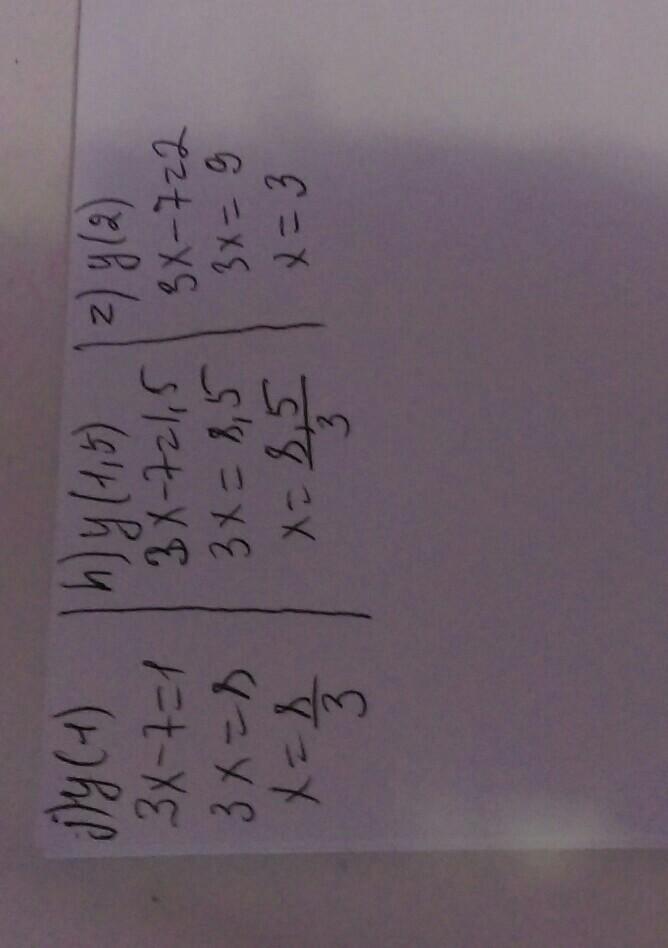 j) y(1)
3x-7=1
3x=8
x=8/3
h) y(1,5)
3x-7=1,5
3x=8,5
x=8,5/3
z) y(2)
3x-7=2
3x=9
x=3